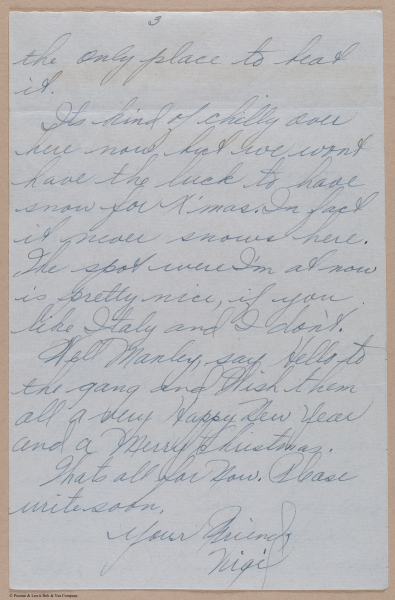 3
the only place to beat
it.
Its kind of chilly over
here now, but we wont
have the luck to have
snow for X'mas. In fact
it never snows here.
The spot were I'm at now
is pretty nice, if you
like Italy and I don't.
Well Manley, say Hello to
the gang and Wish them
all a very Happy New Year
and a Merry Christmas.
Thats all for Now. Please
write soon.
Your Friend